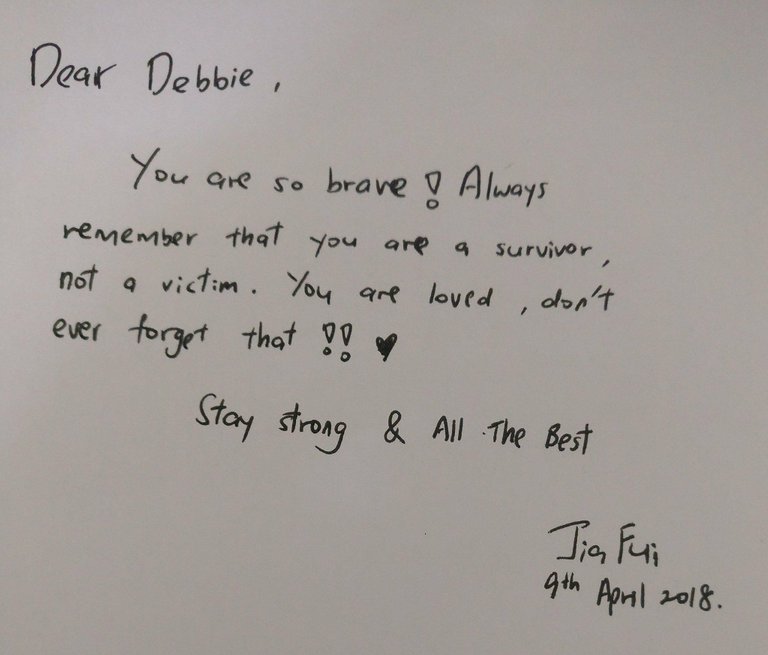 Dear Debbie,
You are so brave! Always
remember that you are a survivor,
not a victim. You are loved, don't
ever forget that!! ♥
Stay strong & All The Best
Jia Fui
9th April 2018.